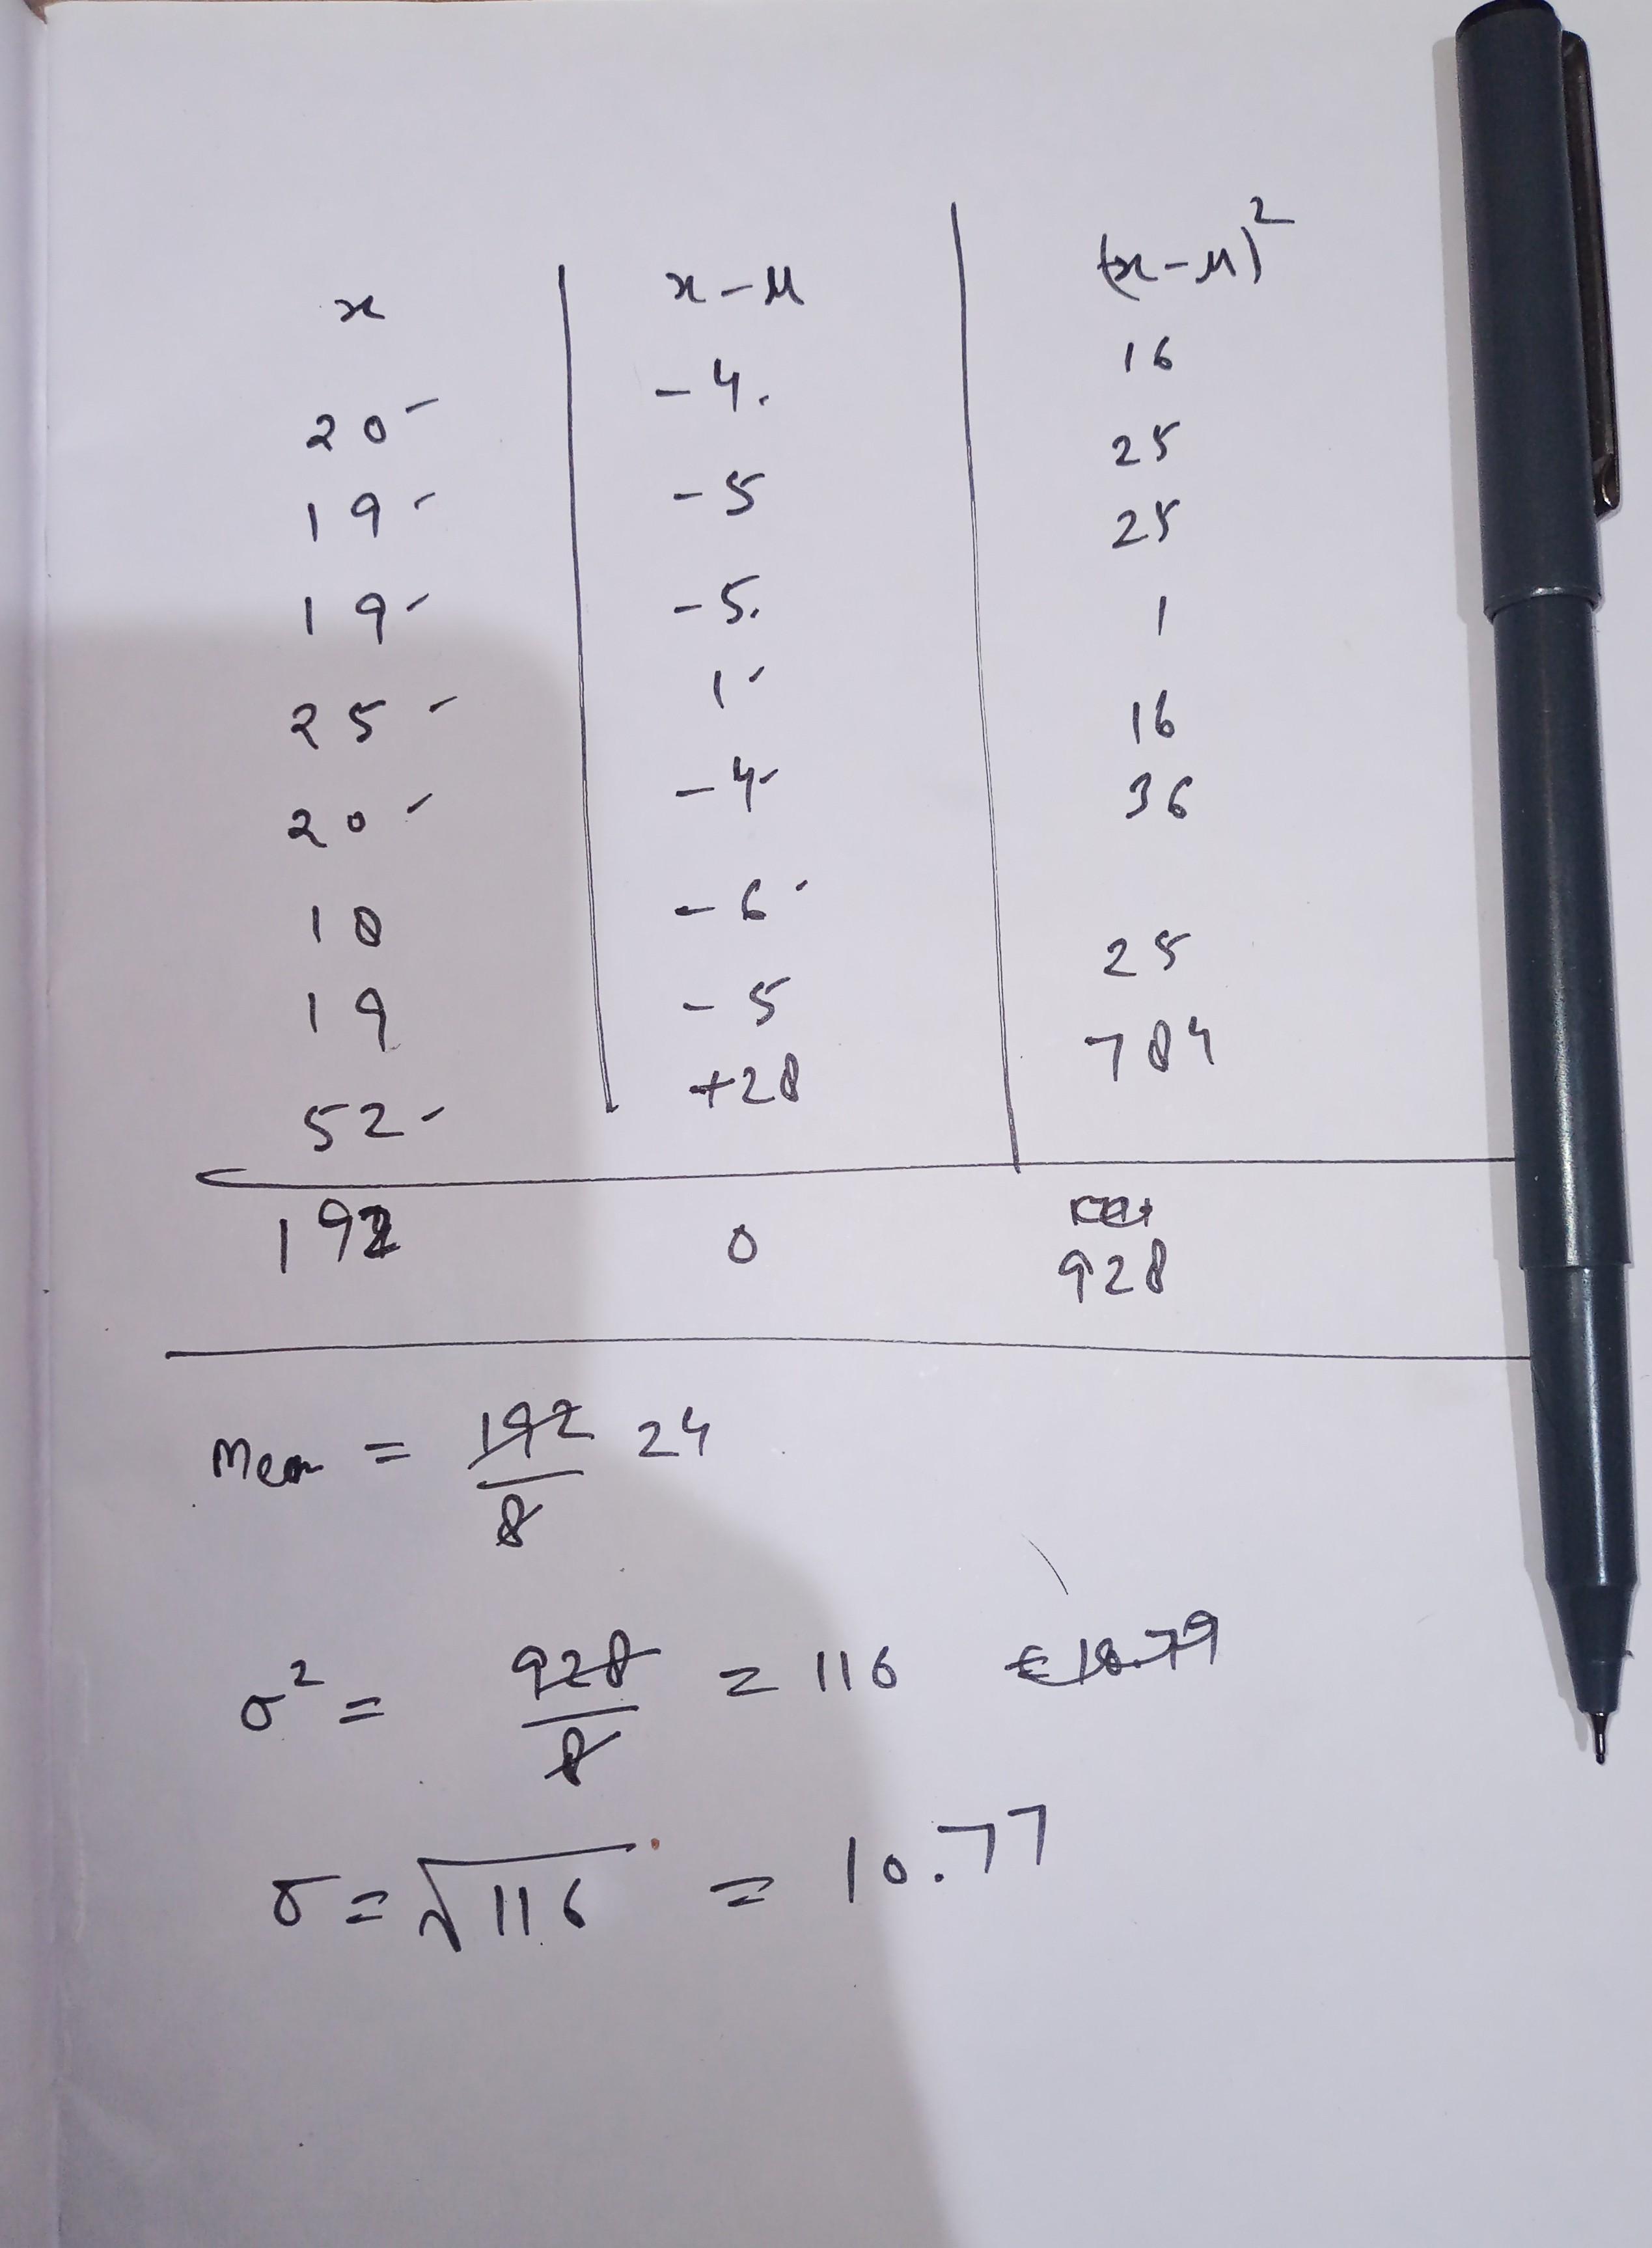 x | x-μ | (x-μ)²
20 | -4 | 16
19 | -5 | 25
19 | -5 | 25
25 | 1 | 1
20 | -4 | 16
18 | -6 | 36
19 | -5 | 25
52 | +28 | 784
192 | 0 | 928
Mean = 192/8 24
σ² = 928/8 = 116
σ = √116 = 10.77